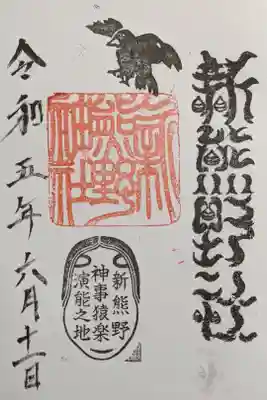 新熊野神社
新熊野
神事猿楽
演能之地
令和五年六月十一日